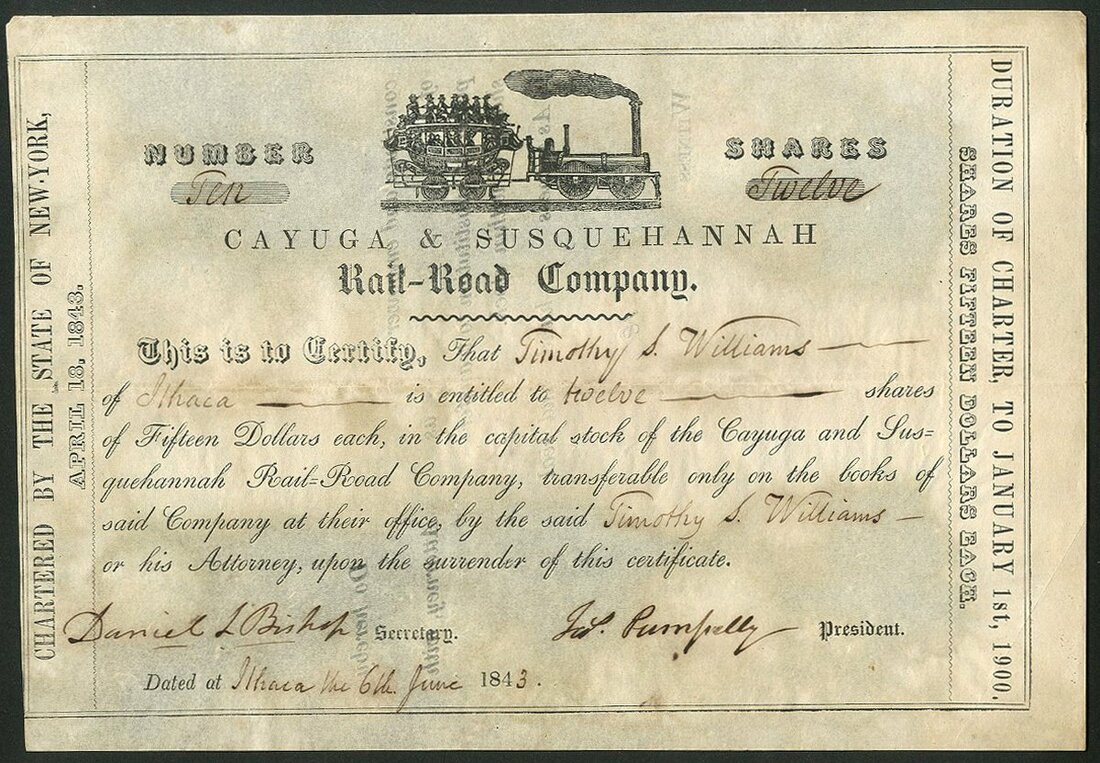 NUMBER
Ten
SHARES
Twelve
CAYUGA & SUSQUEHANNAH
Rail-Road Company.
This is to Certify, That Timothy S. Williams
of Ithaca is entitled to twelve shares
of Fifteen Dollars each, in the capital stock of the Cayuga and Sus=
quehannah Rail=Road Company, transferable only on the books of
said Company at their office, by the said Timothy S. Williams
or his Attorney, upon the surrender of this certificate.
Daniel L Bishop Secretary. Jas. Pumpelly President.
Dated at Ithaca the 6th June 1843.
CHARTERED BY THE STATE OF NEW-YORK,
APRIL 18, 1843.
DURATION OF CHARTER, TO JANUARY 1st, 1900.
SHARES FIFTEEN DOLLARS EACH.